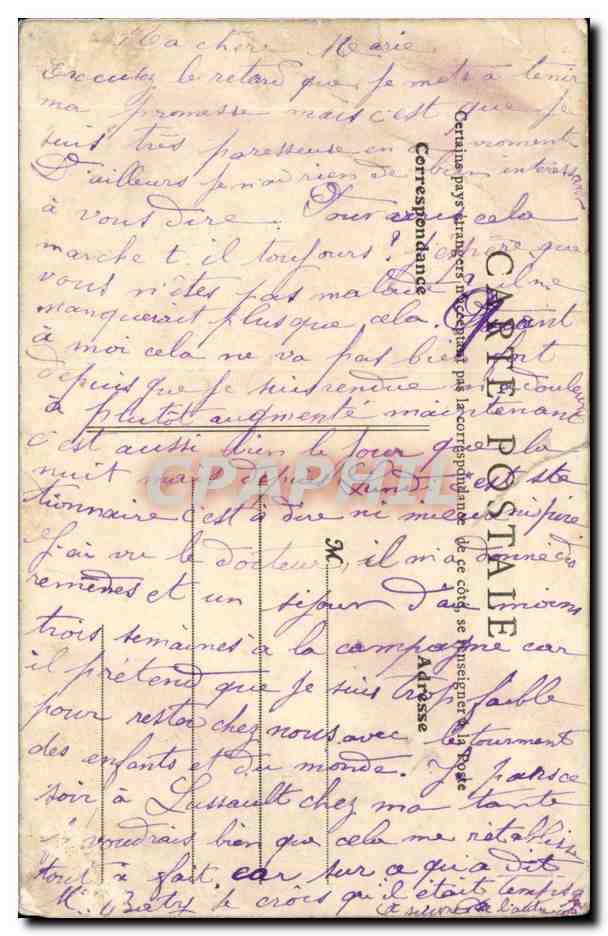 Ma chère Marie
Excusez le retard que je mets à tenir
ma promesse mais c'est que je
suis très paresseuse en ce moment
D'ailleurs je n'ai rien de bien intéress
à vous dire. cela
marche t. il toujours? J'espère que
vous n'êtes pas malade il ne
manquerait plus que cela. Quant
à moi cela ne va pas bien fort
depuis que je suis rendue ma douleur
à plutôt augmenté maintenant
c'est aussi bien le jour que la
nuit mais depuis Lundi c'est sta
tionnaire c'est à dire ni mieux ni pire
J'ai vu le docteur, il m'a donné des
remèdes et un séjour d'au moins
trois semaines à la campagne car
il prétend que je suis trop faible
pour rester chez nous avec le tourment
des enfants et du monde. Je pars ce
soir à Lussault chez ma tante
je voudrais bien que cela me rétablisse
tout à fait. car sur ce qu'a dit
M. je crois qu'il était temps
à suivre de l'autre
CARTE POSTALE
Certains pays étrangers n'acceptant pas la correspondance de ce côté, se renseigner à la Poste
Correspondance
Adresse
M
CPAPHIL